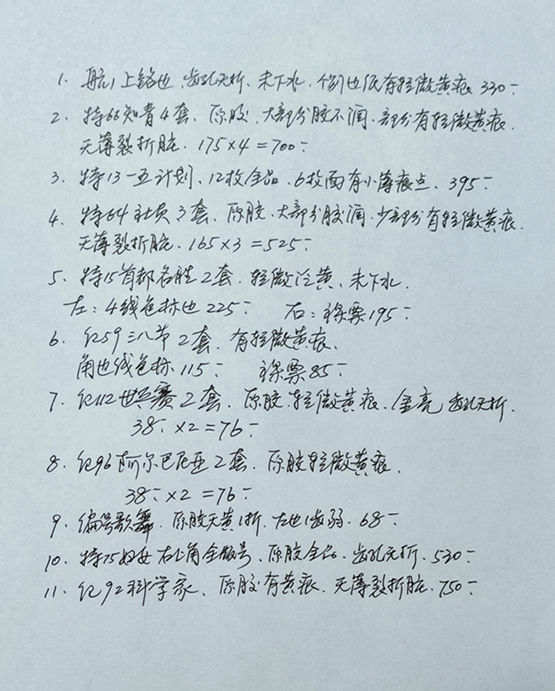 1. 航1上铭边.齿孔无折.未下水.个别边纸有轻微黄痕.330-
2. 特66知青4套.原胶.大部分胶不润.部分有轻微黄痕.
无薄裂折脏.175×4=700-
3. 特13一五计划.12枚全品.6枚面有小薄痕点.395-
4. 特64社员3套.原胶.大部分胶润.少部分有轻微黄痕.
无薄裂折脏.165×3=525-
5. 特15首都名胜2套.轻微泛黄.未下水
左:4线色标边225- 右:裸票195-
6. 纪59三八节2套.有轻微黄痕.
角边线色标.115- 裸票85-
7. 纪112世乒赛2套.原胶.轻微黄痕.金亮.齿孔无折.
38-×2=76-
8. 纪96阿尔巴尼亚2套.原胶轻微黄痕.
38-×2=76-
9. 编号歌舞.原胶无黄1折.左边1齿弱.68-
10. 特75妇女右上角全版号.原胶全品.齿孔无折.530-
11. 纪92科学家.原胶有黄痕.无薄裂折脏.750-